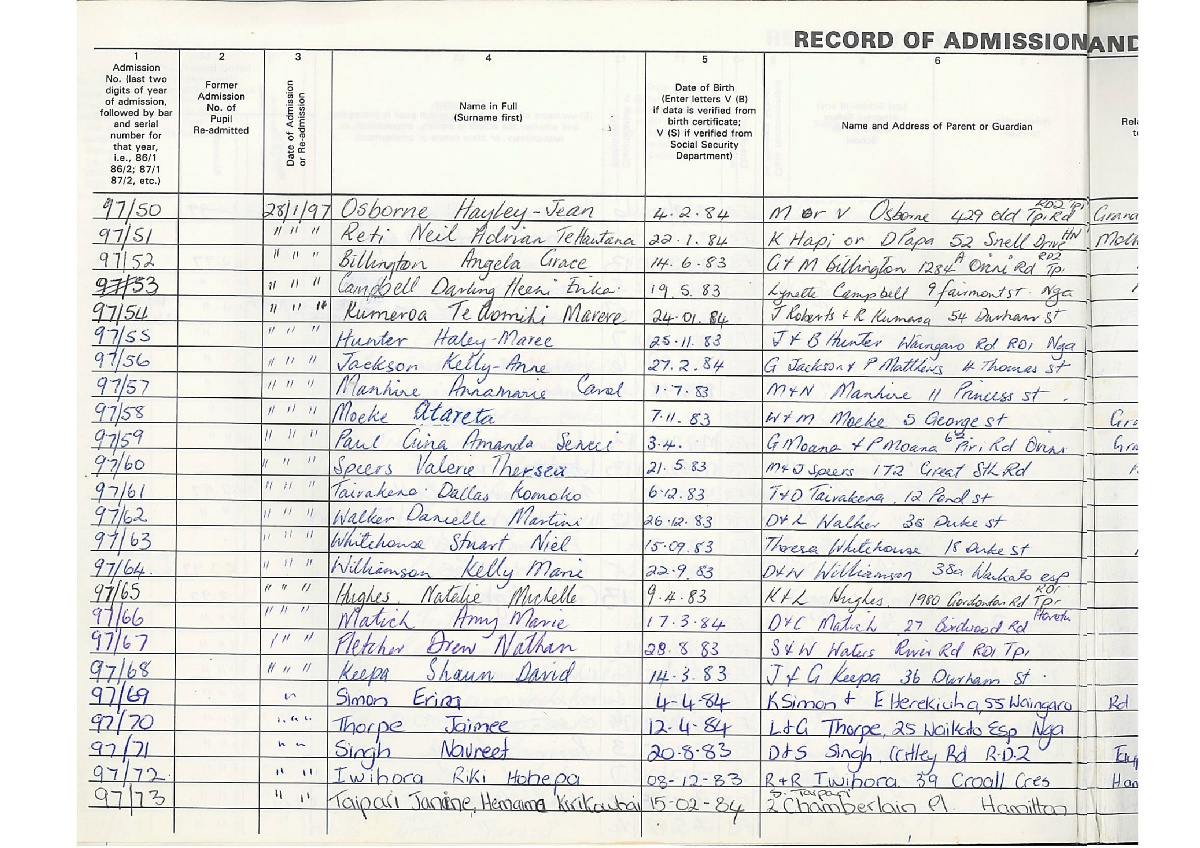 RECORD OF ADMISSION AND
1 2 3 4 5 6
Admission No. (last two digits of year of admission, followed by bar and serial number for that year, i.e., 86/1 86/2; 87/1 87/2, etc.)
Former Admission No. of Pupil Re-admitted
Date of Admission or Re-admission
Name in Full (Surname first)
Date of Birth (Enter letters V (B) if data is verified from birth certificate; V (S) if verified from Social Security Department)
Name and Address of Parent or Guardian
97/50 28/1/97 Osborne Hayley-Jean 4.2.84 M or V Osborne 429 old Tpi Rd RD2 Tpi
97/51 " " " Reti Neil Adrian TeHautana 22.1.84 K Hapi or D Papa 52 Snell Drive HN
97/52 " " " Billington Angela Grace 14.6.83 G & M Billington 1284A Orini Rd RD2 Tpi
97/53 " " " Campbell Darling Heeni Erika 19.5.83 Lynette Campbell 9 fairmont st Nga
97/54 " " " Kumeroa Te Aomihi Marere 24.01.84 J Roberts & R Kumeroa 54 Durham st
97/55 " " " Hunter Haley-Maree 25.11.83 J & B Hunter Waingaro Rd RD1 Nga
97/56 " " " Jackson Kelly-Anne 27.2.84 G Jackson & P Matthews 4 Thomas st
97/57 " " " Manhire Annamarie Carol 1.7.83 M&N Manhire 11 Princess st
97/58 " " " Moeke Atareta 7.11.83 W & M Moeke 5 George st
97/59 " " " Paul Gina Amanda 3.4. G Moana & P Moana Piri Rd Orini
97/60 " " " Speers Valerie Thersea 21.5.83 M&J Speers 172 Great Sth Rd
97/61 " " " Tairakena Dallas Komoko 6.12.83 T&D Tairakena 12 Pond st
97/62 " " " Walker Danielle Martini 26.12.83 D&L Walker 36 Duke st
97/63 " " " Whitehouse Stuart Niel 15.09.83 Theresa Whitehouse 18 Duke st
97/64 " " " Williamson Kelly Marie 22.9.83 D&W Williamson 38a Waikato esp
97/65 " " " Hughes Natalie Michelle 9.4.83 K&L Hughes 1980 Gordonton Rd RD1 Tpi
97/66 " " " Matich Amy Marie 17.3.84 D&C Matich 27 Birdwood Rd
97/67 " " " Fletcher Drew Nathan 28.8 83 S&W Waters River Rd RD1 Tpi
97/68 " " " Keepa Shaun David 14.3.83 J & G Keepa 36 Durham st
97/69 " Simon Erina 4-4-84 K Simon & E Herekiuha, 55 Waingaro Rd
97/70 " " " Thorpe Jaimee 12-4-84 L&G Thorpe, 25 Waikato Esp Nga
97/71 " " Singh Navreet 20-8-83 D&S Singh, Rd R.D.2
97/72 " " Iwihora Riki Hohepa 08-12-83 R&R Iwihora 39 Croall Cres
97/73 " " Taipari Janine, Hemaima 15-02-84 S. Taipari 2 Chamberlain Pl. Hamilton